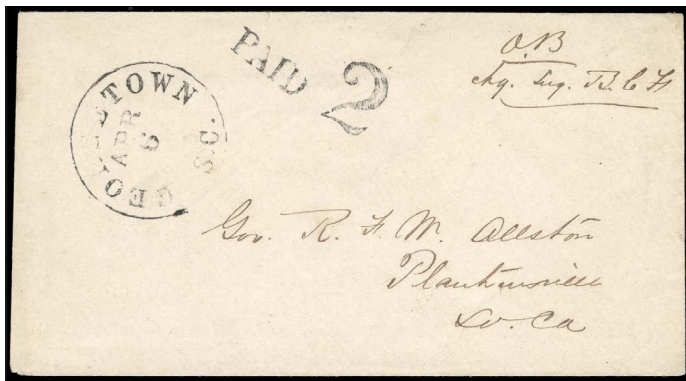 GEORGETOWN S.C.
APR
6
PAID 2
O.B
Chg. Sug. B. C F
Gov. R. F. W. Allston
Plantersville
So. Ca